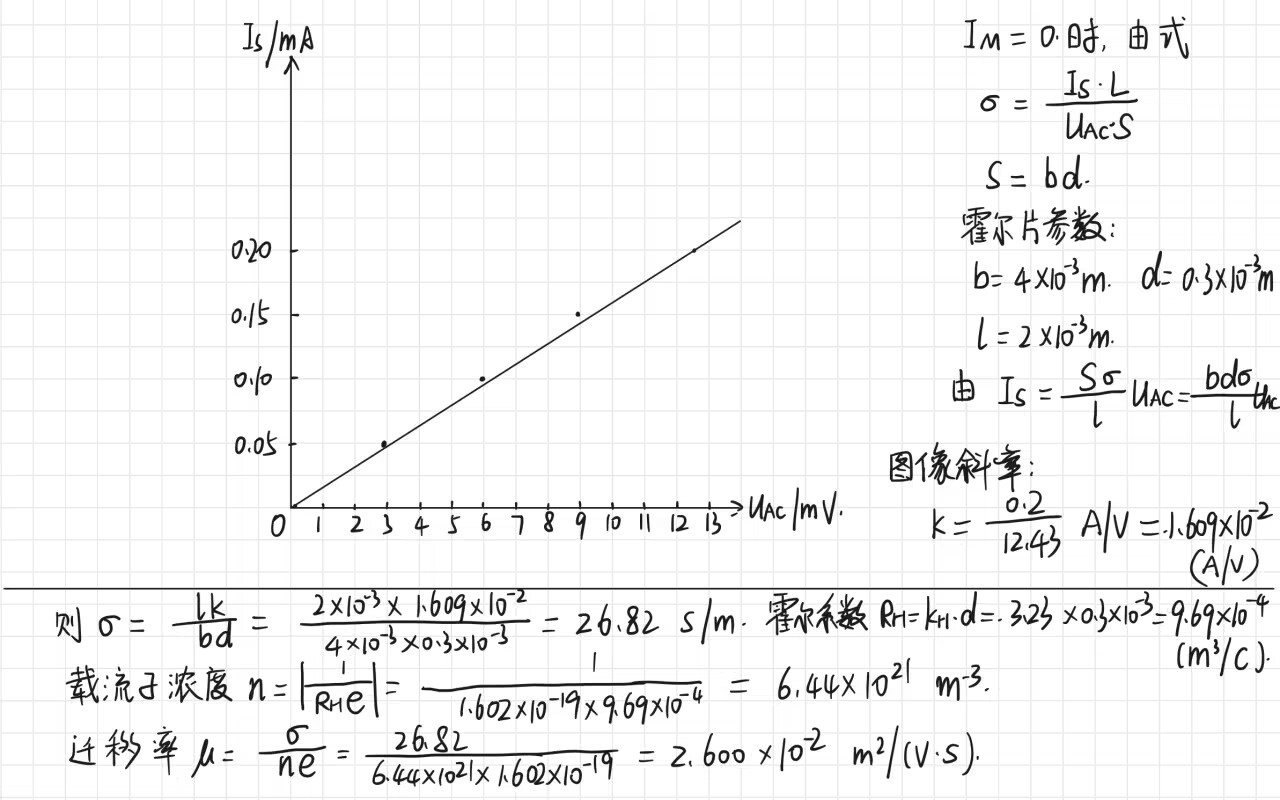 Is/mA
0.20
0.15
0.10
0.05
0 1 2 3 4 5 6 7 8 9 10 11 12 13 UAC/mV.
IM = 0时, 由式
σ = Is·L / UAC·S
S = bd.
霍尔片参数:
b = 4×10⁻³m. d = 0.3×10⁻³m
l = 2×10⁻³m.
由 Is = Sσ/l UAC = bdσ/l UAC
图像斜率:
k = 0.2/12.43 A/V = 1.609×10⁻²
(A/V)
则 σ = lk/bd = 2×10⁻³ × 1.609×10⁻² / 4×10⁻³ × 0.3×10⁻³ = 26.82 S/m. 霍尔系数 RH = kH·d = 3.23 × 0.3×10⁻³ = 9.69×10⁻⁴
(m³/C).
载流子浓度 n = |1/RHe| = 1 / 1.602×10⁻¹⁹ × 9.69×10⁻⁴ = 6.44×10²¹ m⁻³.
迁移率 μ = σ/ne = 26.82 / 6.44×10²¹ × 1.602×10⁻¹⁹ = 2.600×10⁻² m²/(V·S).